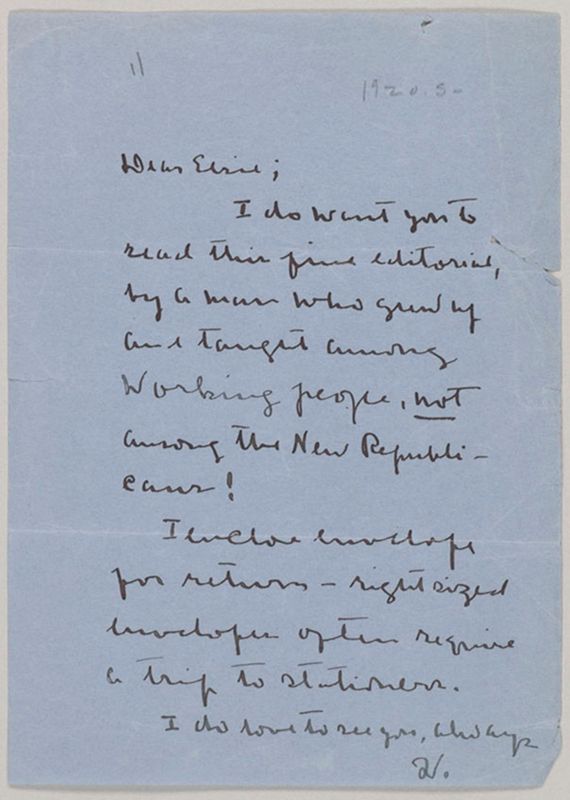 11
1920.s-
Dear Elsie;
I do want you to
read this fine editorial,
by a man who grew up
and taught among
Working people, not
among the New Republi-
cans!
I enclose envelope
for return - right sized
envelopes often require
a trip to stationers.
I do love to see you, always
W.